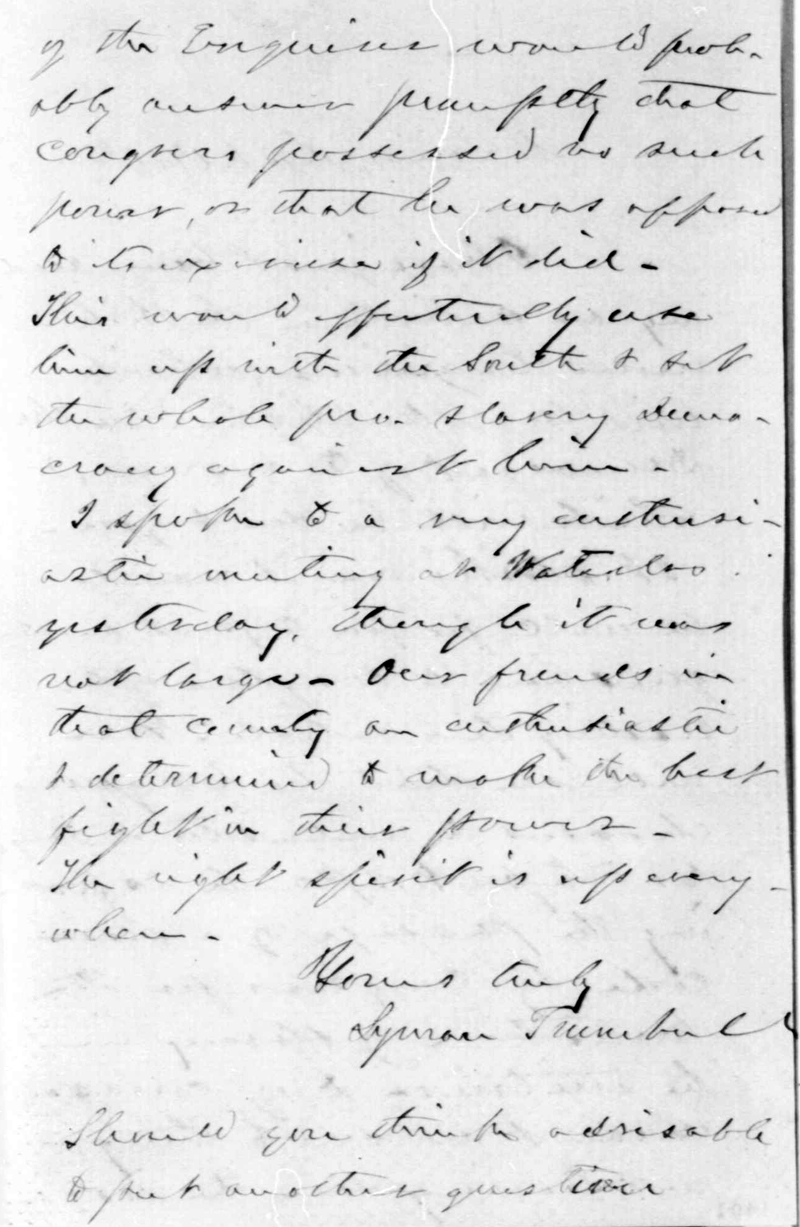 of the Enquirer would prob-
ably answer promptly that
Congress possessed no such
power, or that he was opposed
to its exercise if it did -
This would effectually use
him up with the South & set
the whole pro-slavery Demo-
cracy against him -
I spoke to a very enthusi-
astic meeting at Waterloo
yesterday, though it was
not large - Our friends in
that county are enthusiastic
& determined to make the best
fight in their power -
The right spirit is up every-
where -
Yours truly
Lyman Trumbull
Should you think advisable
to put another question